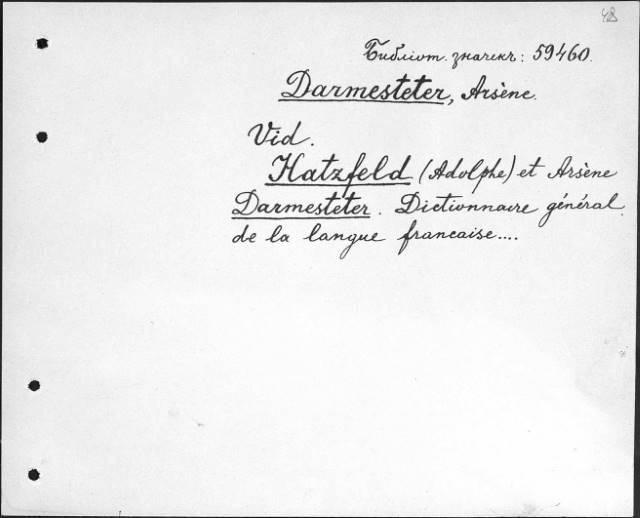 48
Библіот. значекъ: 59460.
Darmesteter, Arsène.
Vid.
Hatzfeld (Adolphe) et Arsène
Darmesteter. Dictionnaire général
de la langue francaise....